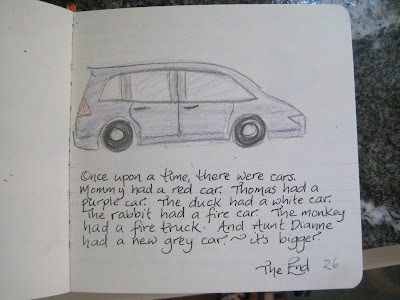 Once upon a time, there were cars.
Mommy had a red car. Thomas had a
purple car. The duck had a white car.
The rabbit had a fire car. The monkey
had a fire truck. And Aunt Dianne
had a new grey car. ~ it's bigger.
The End 26